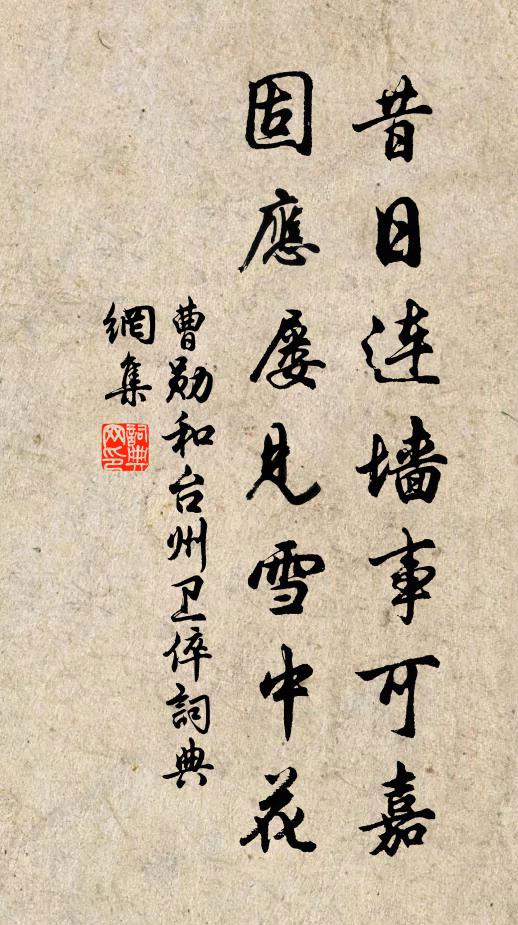 昔日连墙事可嘉
固應屡见雪中花
曹勋和台州卫倅詞典
網集
詞典网印